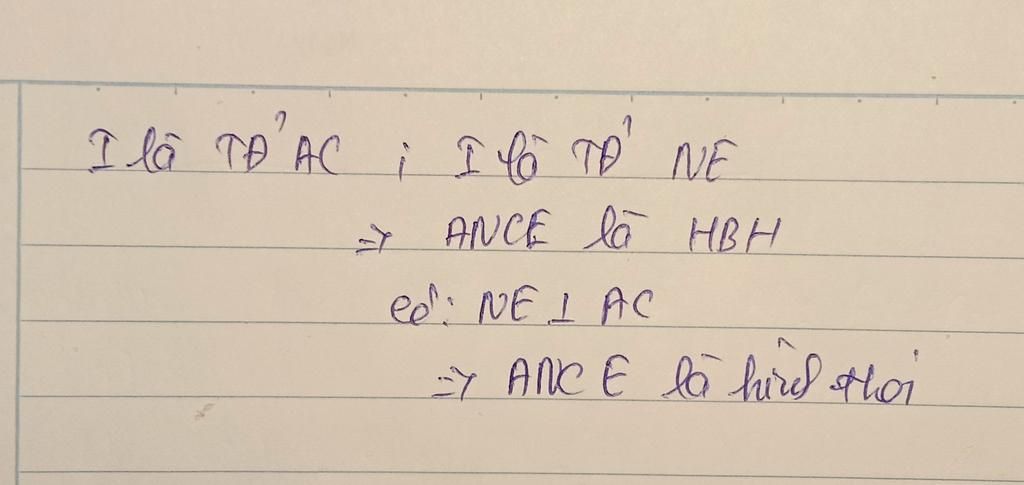 I là TĐ' AC ; I là TĐ' NE
=> ANCE là HBH
có: NE ⊥ AC
=> ANCE là hình thoi